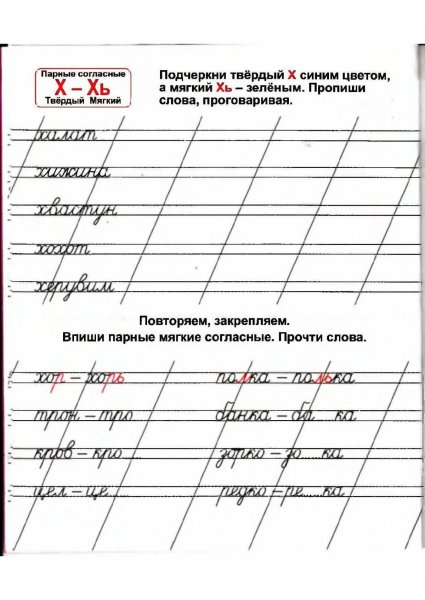 Парные согласные
Х – Хь
Твёрдый Мягкий
Подчеркни твёрдый Х синим цветом,
а мягкий Хь – зелёным. Пропиши
слова, проговаривая.
халат
хижина
хвастун
хохот
херувим
Повторяем, закрепляем.
Впиши парные мягкие согласные. Прочти слова.
хор – хорь полка – полька
трон – тро банка – ба ка
кров – кро.... зорко – зо.... ка
цел – це.... редко – ре.....ка